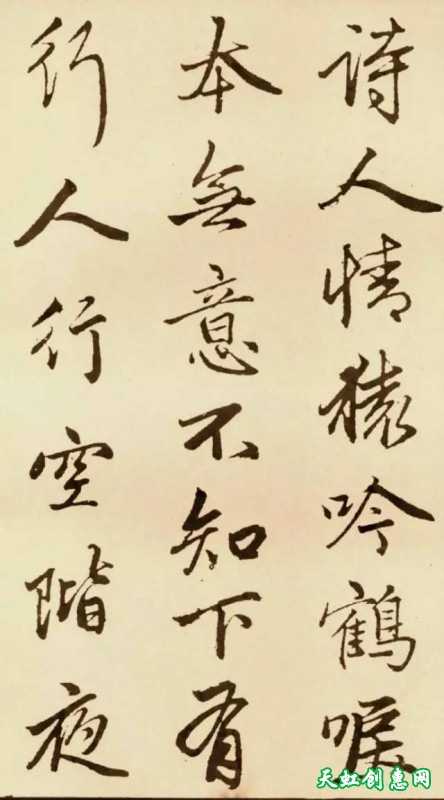 詩人情猿吟鶴唳
本無意不知下有
行人行空階夜
天虹创惠网